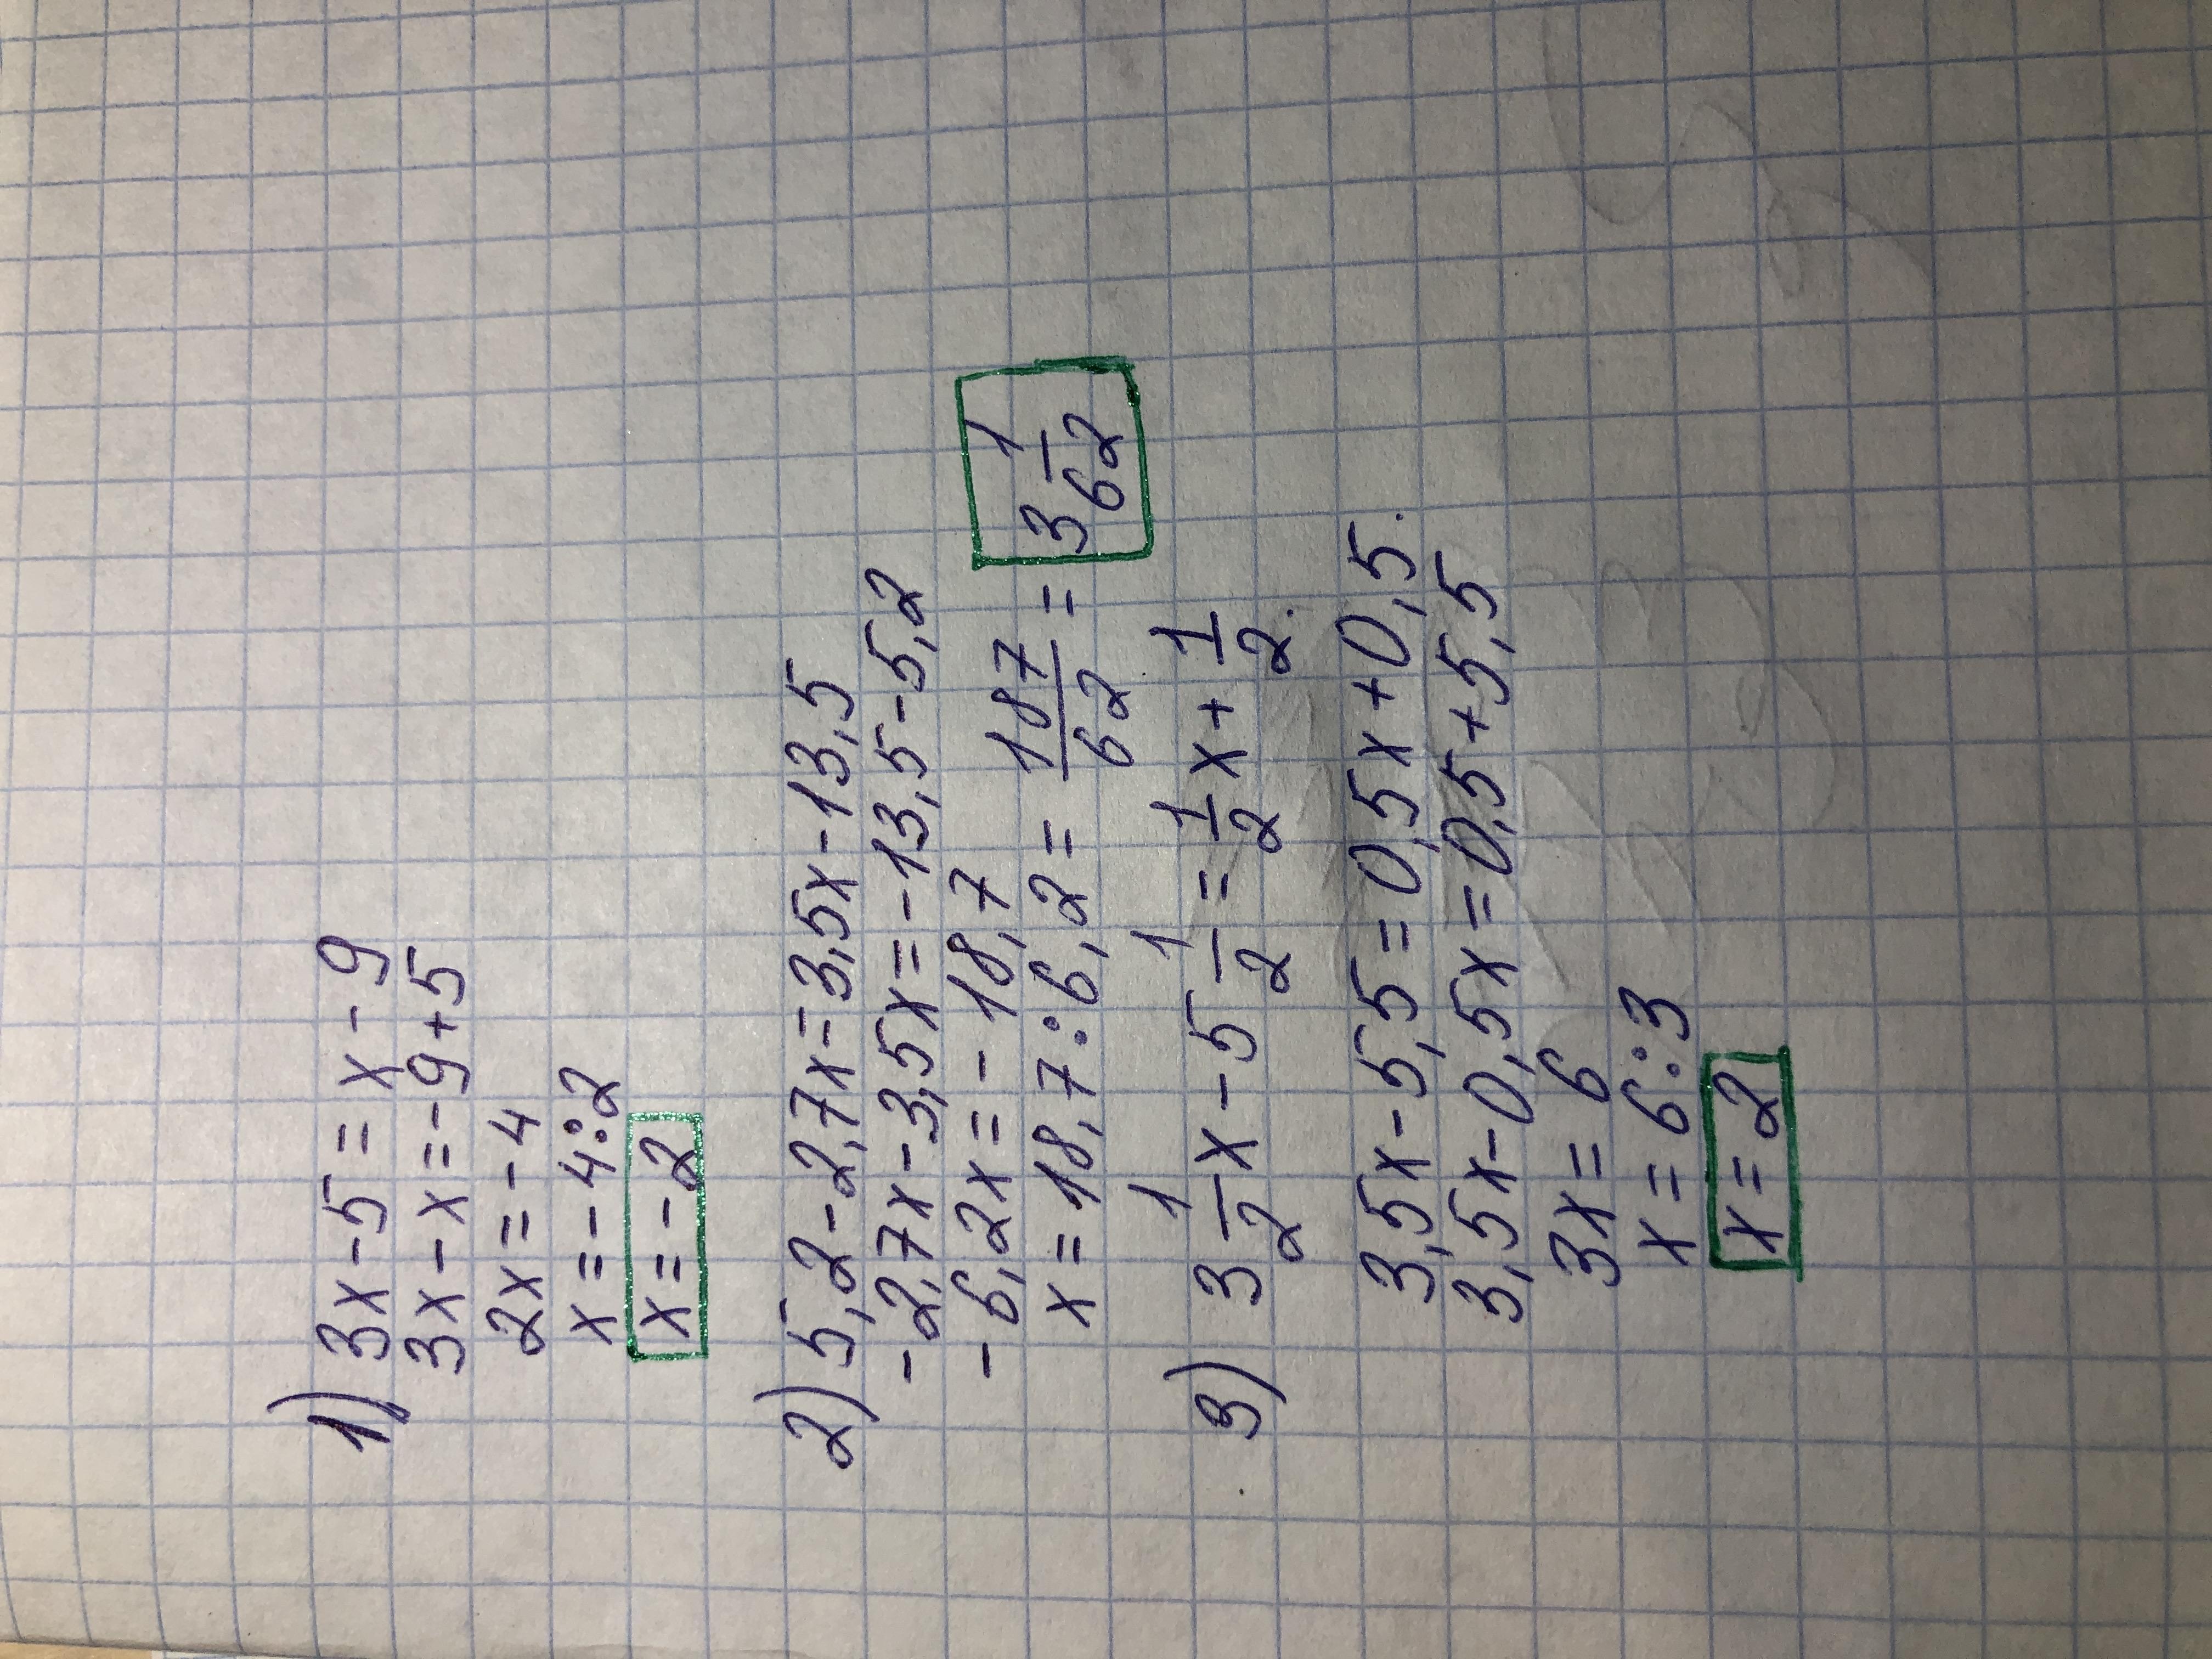 1) 3x-5=x-9
3x-x=-9+5
2x=-4
x=-4:2
x=-2
2) 5,2-2,7x=3,5x-13,5
-2,7x-3,5x=-13,5-5,2
-6,2x=-18,7
x=18,7:6,2=187/62=3 1/62
3) 3 1/2 x-5 1/2=1/2 x+1/2.
3,5x-5,5=0,5x+0,5.
3,5x-0,5x=0,5+5,5
3x=6
x=6:3
x=2